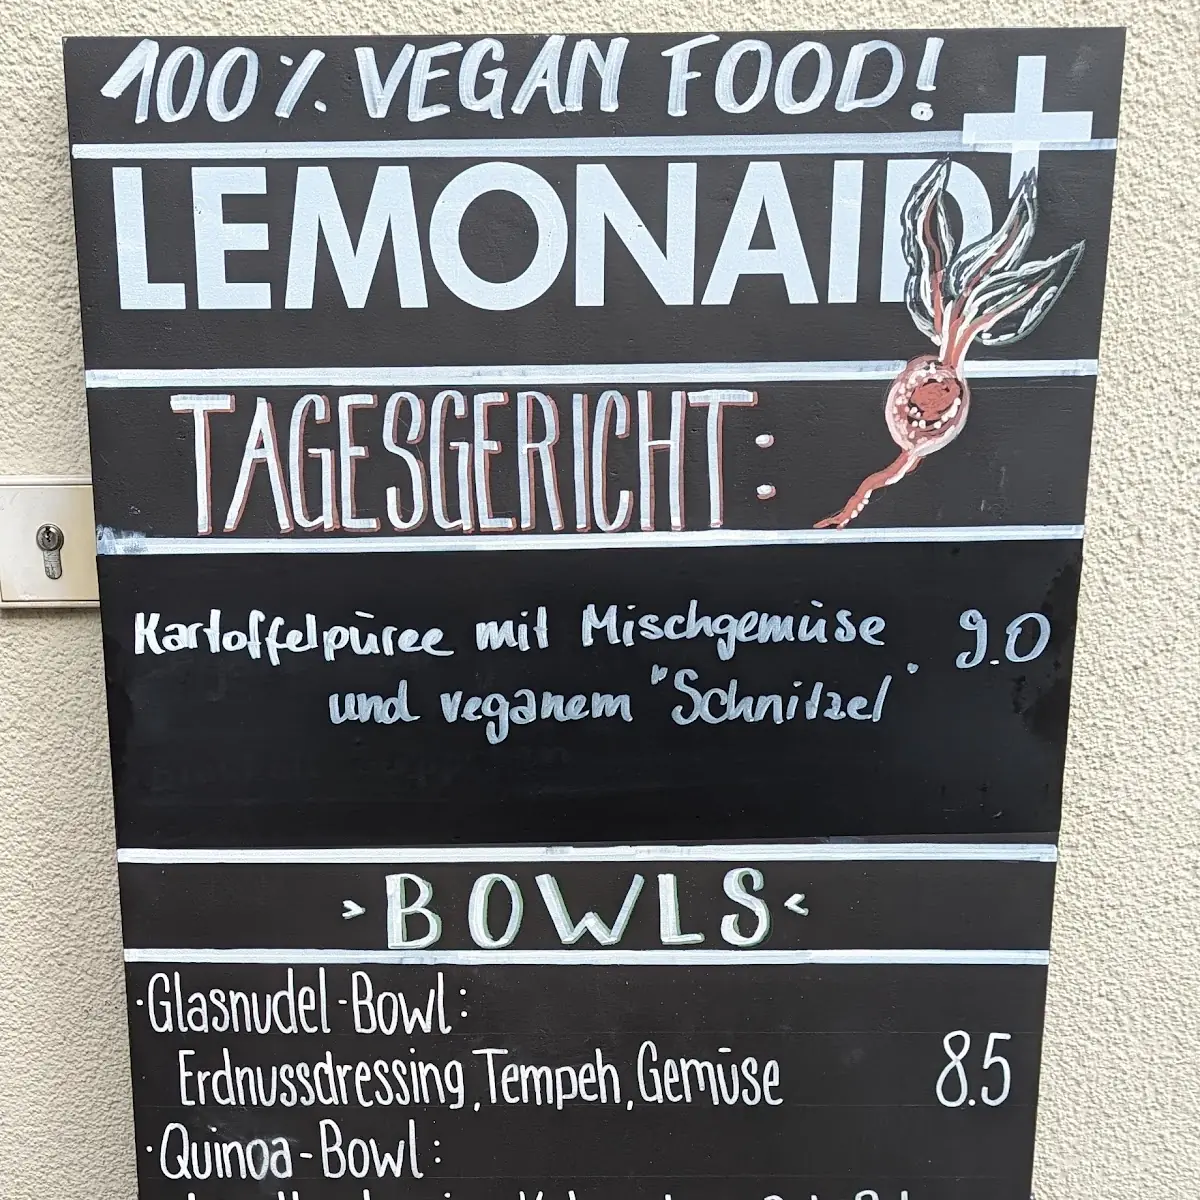 100% VEGAN FOOD!
LEMONAID+
TAGESGERICHT:
Kartoffelpüree mit Mischgemüse 9.0
und veganem "Schnitzel"
>BOWLS<
·Glasnudel-Bowl:
Erdnussdressing, Tempeh, Gemüse 8.5
·Quinoa-Bowl: